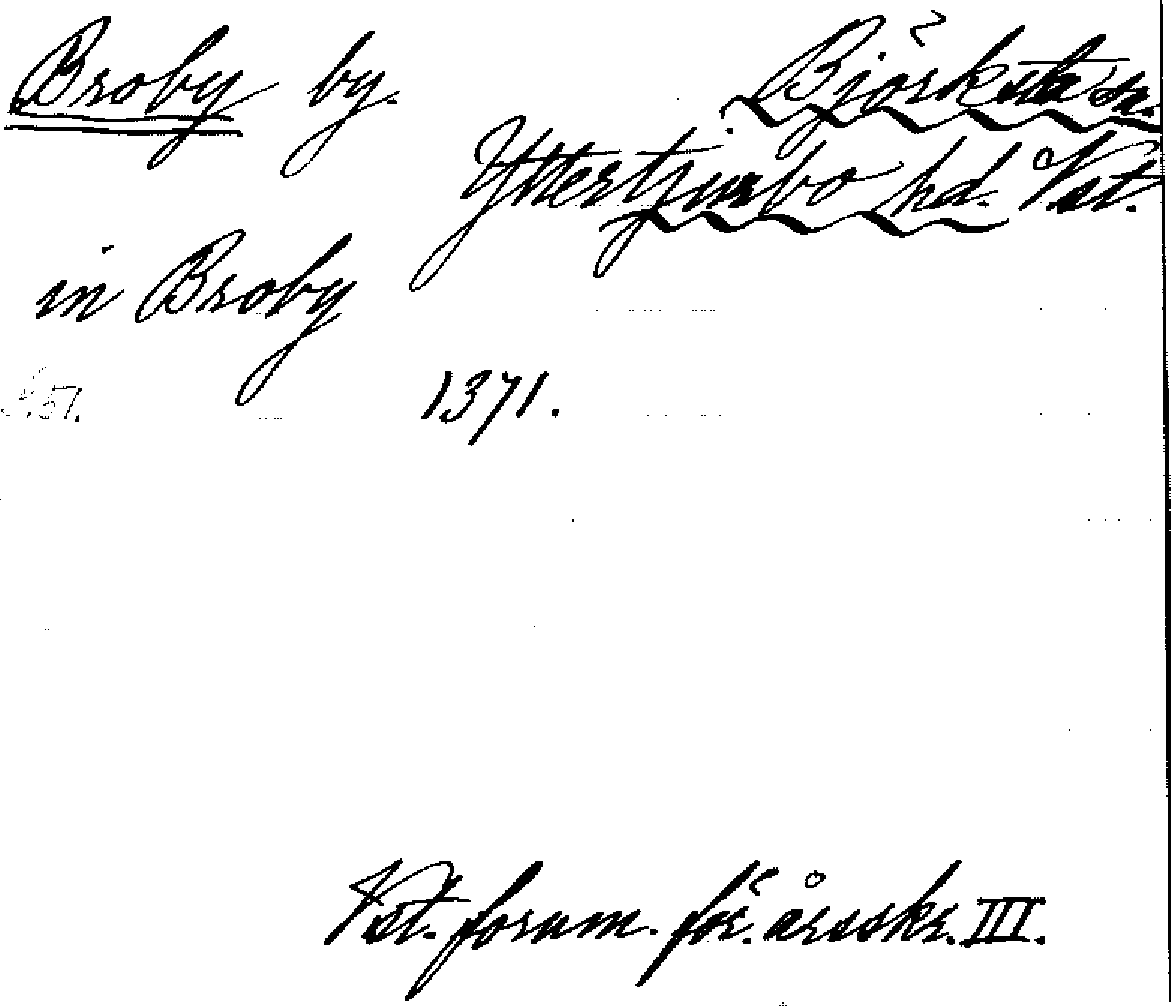 Broby by. Björksta sn.
Yttertjurbo hd. Vst.
in Broby
s. 57. 1371.
Vst. fornm. för. årsskr. III.